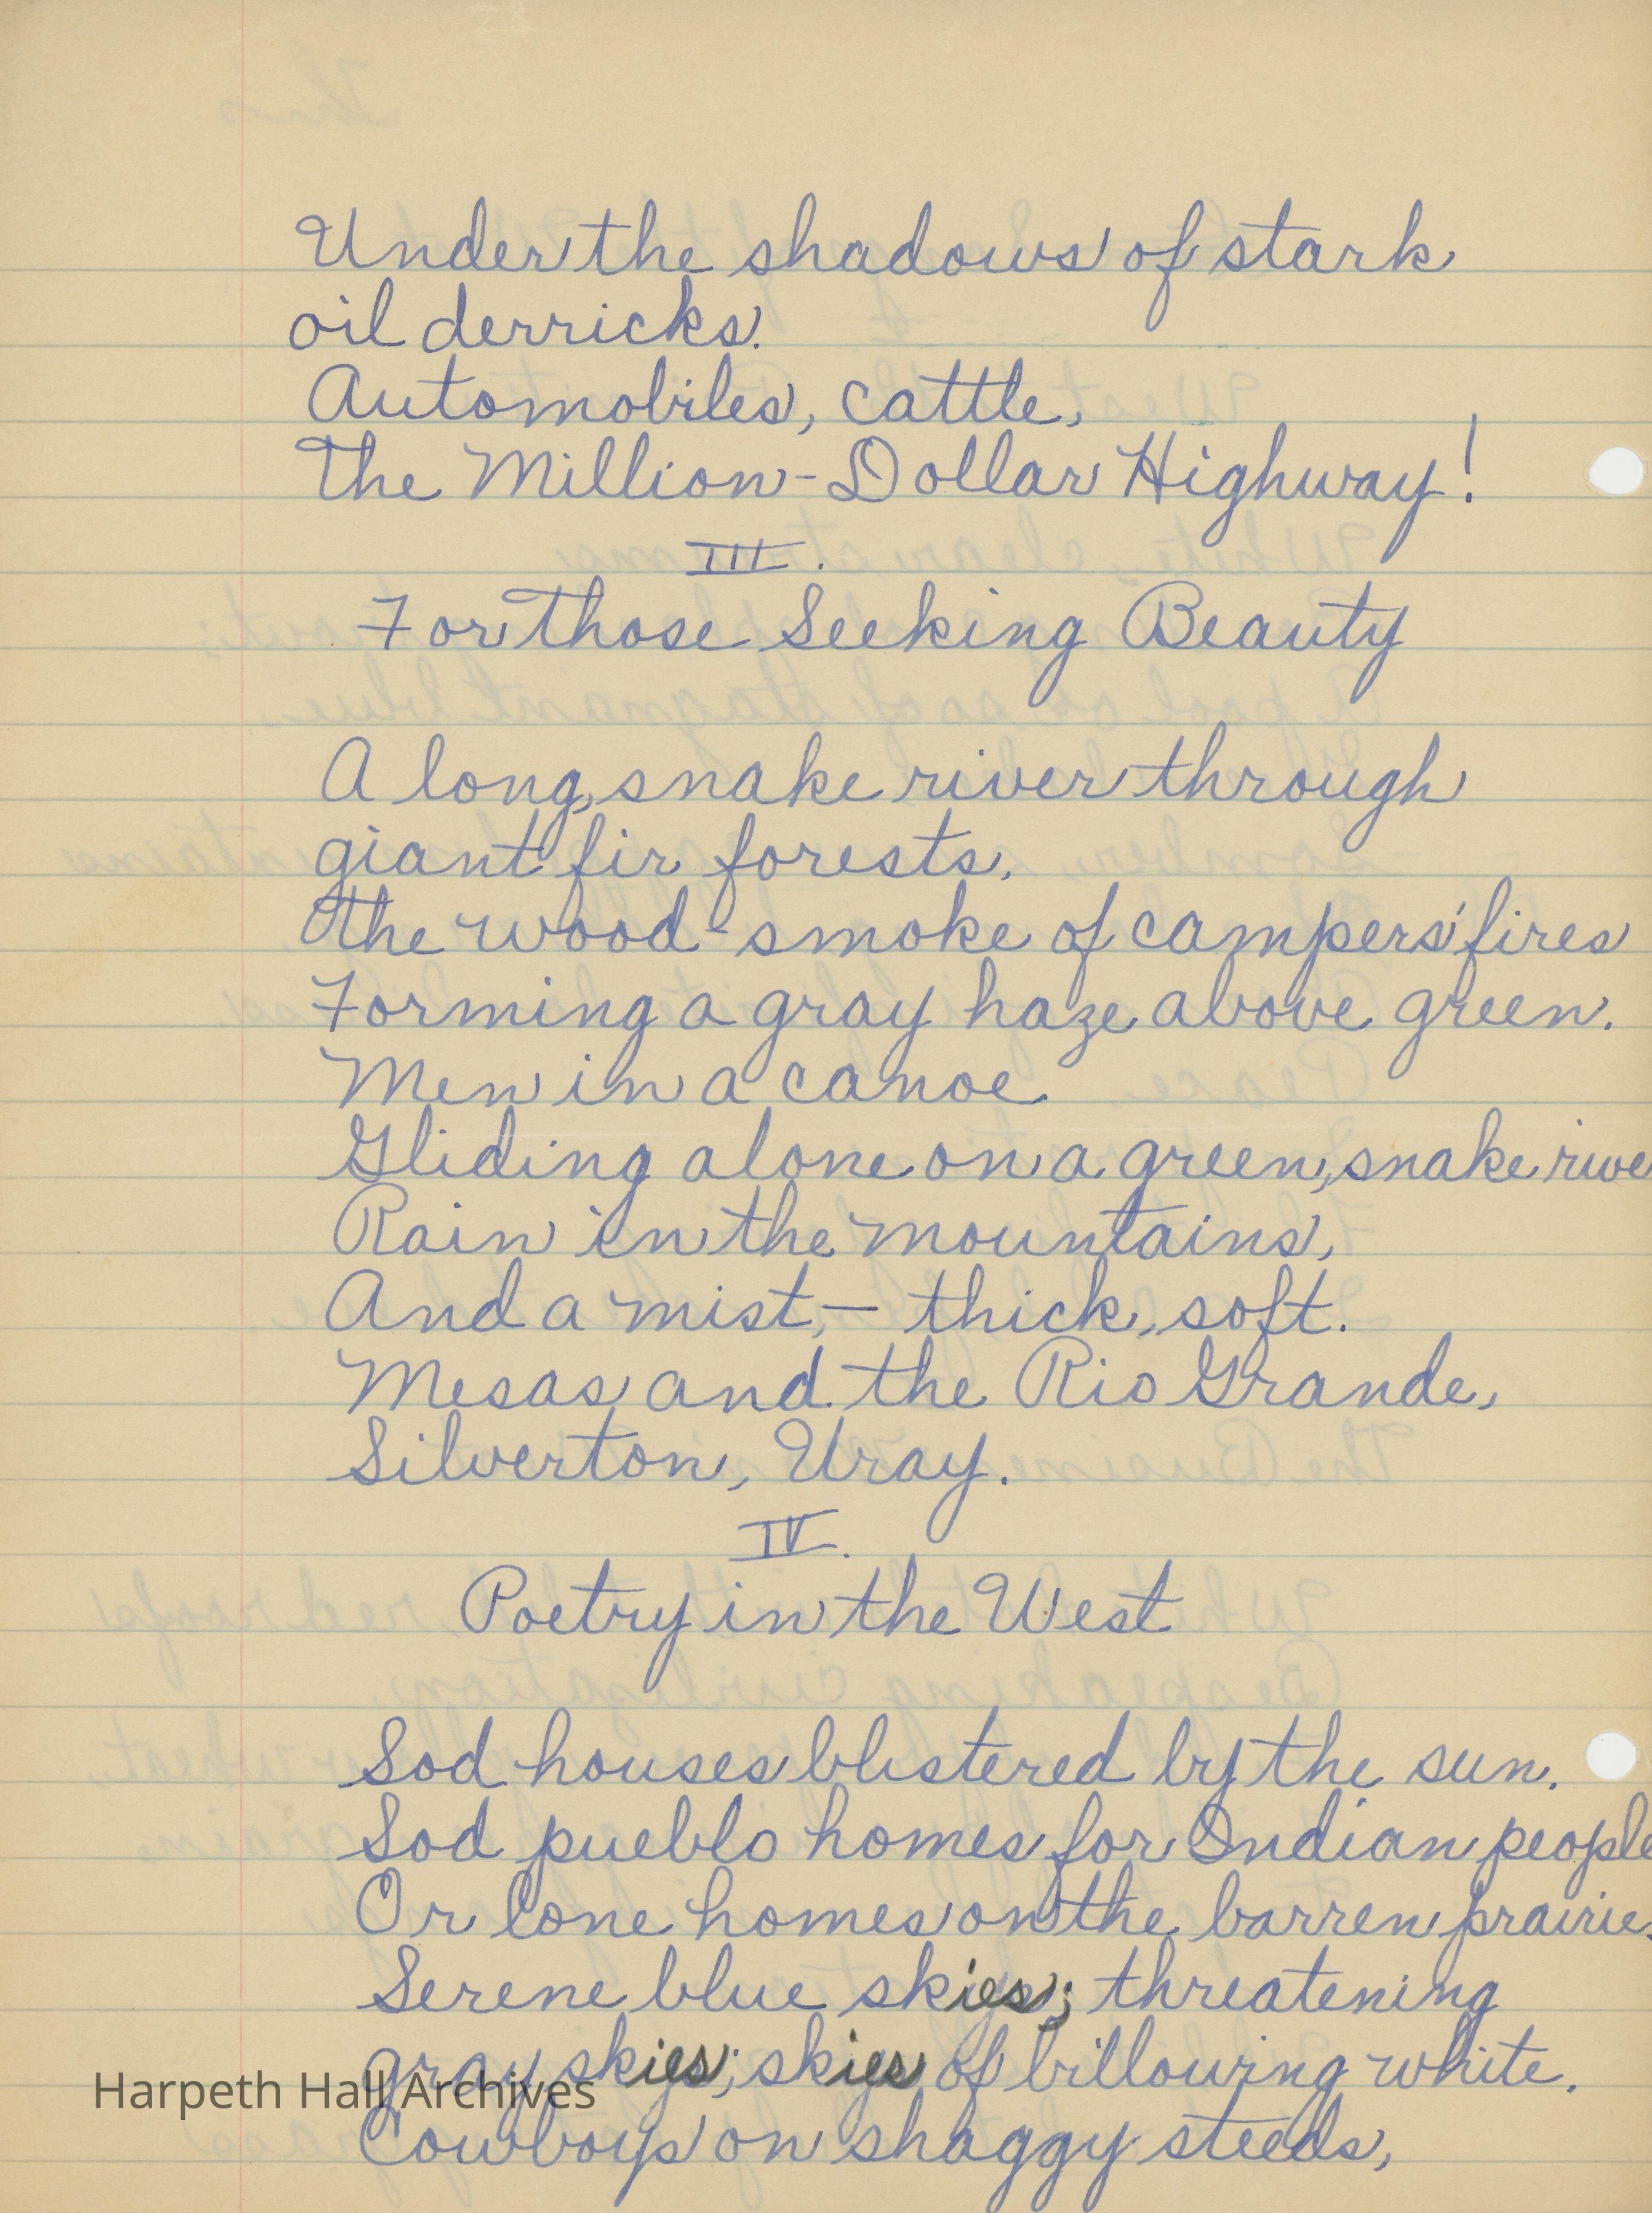 Under the shadows of stark
oil derricks.
Automobiles, cattle,
The Million-Dollar Highway!
III.
For Those Seeking Beauty
A long, snake river through
giant fir forests.
The wood-smoke of campers' fires
Forming a gray haze above green.
Men in a canoe
Gliding alone on a green, snake rive
Rain in the mountains,
And a mist, — thick, soft.
Mesas and the Rio Grande,
Silverton, Uray.
IV.
Poetry in the West
Sod houses blistered by the sun.
Sod pueblo homes for Indian people
Or lone homes on the barren prairie.
Serene blue skies; threatening
gray skies; skies of billowing white.
Harpeth Hall Archives
Cowboys on shaggy steeds,